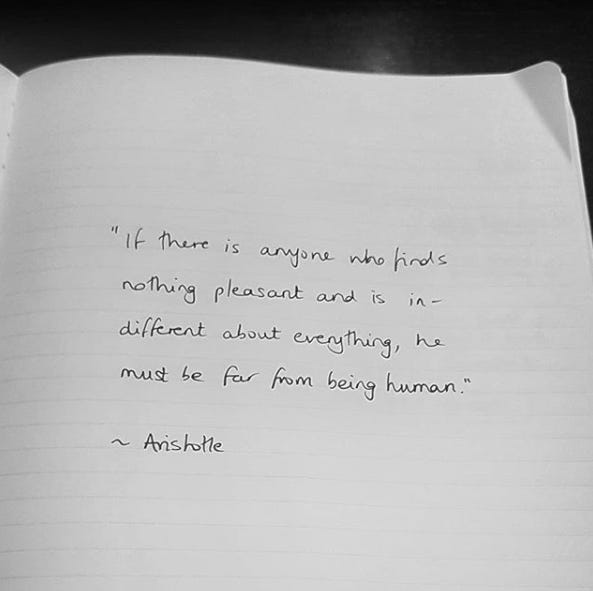 "If there is anyone who finds
nothing pleasant and is in-
different about everything, he
must be far from being human."
~ Aristotle